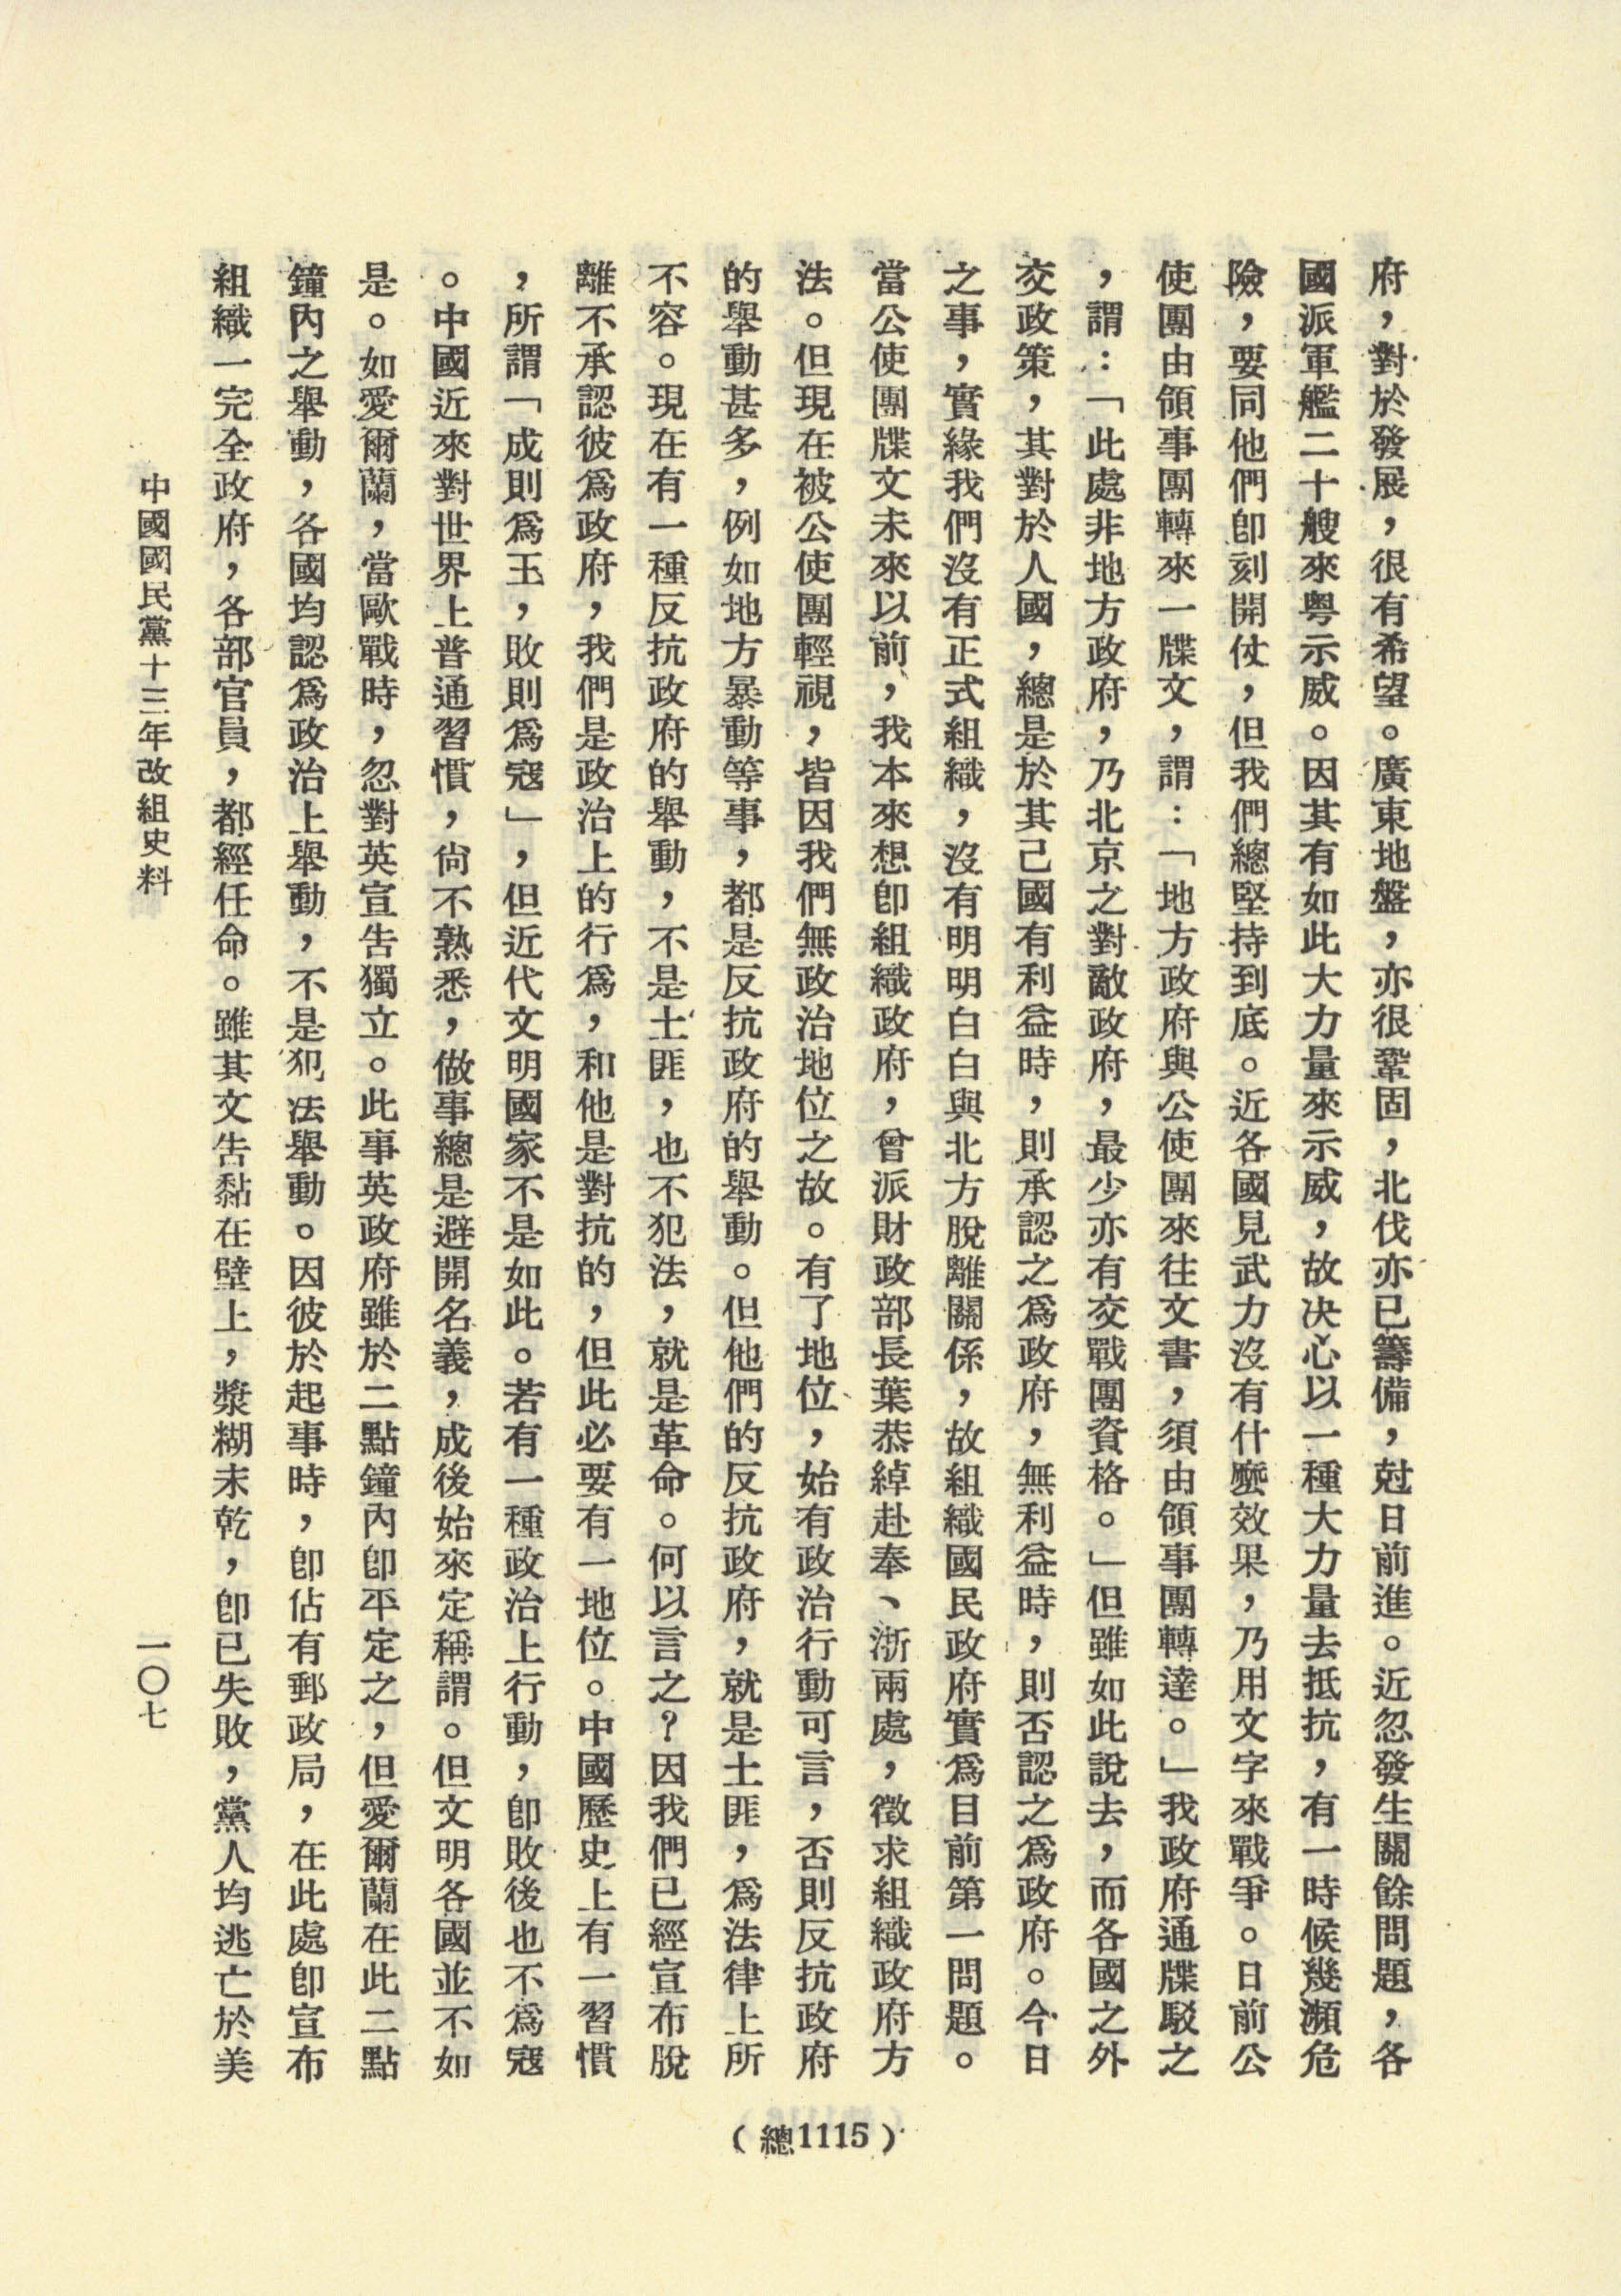 府，對於發展，很有希望。廣東地盤，亦很鞏固，北伐亦已籌備，尅日前進。近忽發生關餘問題，各
國派軍艦二十艘來粤示威。因其有如此大力量來示威，故決心以一種大力量去抵抗，有一時候幾瀕危
險，要同他們卽刻開仗，但我們總堅持到底。近各國見武力沒有什麼效果，乃用文字來戰爭。日前公
使團由領事團轉來一牒文，謂：「地方政府與公使團來往文書，須由領事團轉達。」我政府通牒駁之
，謂：「此處非地方政府，乃北京之對敵政府，最少亦有交戰團資格。」但雖如此說去，而各國之外
交政策，其對於人國，總是於其己國有利益時，則承認之爲政府，無利益時，則否認之爲政府。今日
之事，實緣我們沒有正式組織，沒有明明白白與北方脫離關係，故組織國民政府實爲目前第一問題。
當公使團牒文未來以前，我本來想卽組織政府，曾派財政部長葉恭綽赴奉、浙兩處，徵求組織政府方
法。但現在被公使團輕視，皆因我們無政治地位之故。有了地位，始有政治行動可言，否則反抗政府
的舉動甚多，例如地方暴動等事，都是反抗政府的舉動。但他們的反抗政府，就是土匪，爲法律上所
不容。現在有一種反抗政府的舉動，不是土匪，也不犯法，就是革命。何以言之？因我們已經宣布脫
離不承認彼爲政府，我們是政治上的行爲，和他是對抗的，但此必要有一地位。中國歷史上有一習慣
，所謂「成則爲王，敗則爲寇」，但近代文明國家不是如此。若有一種政治上行動，卽敗後也不爲寇
。中國近來對世界上普通習慣，尙不熟悉，做事總是避開名義，成後始來定稱謂。但文明各國並不如
是。如愛爾蘭，當歐戰時，忽對英宣告獨立。此事英政府雖於二點鐘內卽平定之，但愛爾蘭在此二點
鐘內之舉動，各國均認爲政治上舉動，不是犯法舉動。因彼於起事時，卽佔有郵政局，在此處卽宣布
組織一完全政府，各部官員，都經任命。雖其文告黏在壁上，漿糊未乾，卽已失敗，黨人均逃亡於美
中國國民黨十三年改組史料
一〇七
（總1115）